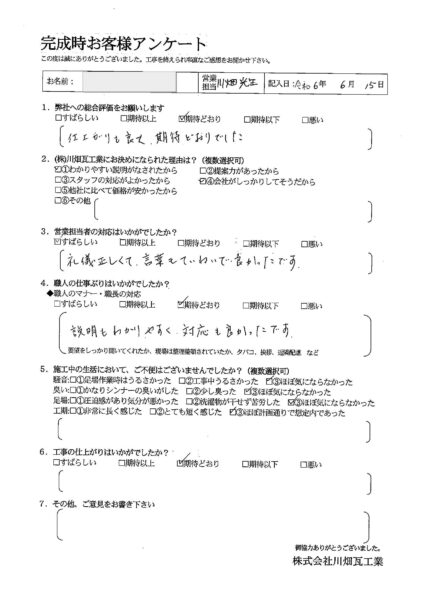 完成時お客様アンケート
この度は誠にありがとうございました。工事を終えられ率直なご感想をお聞かせ下さい。
お名前： 営業担当 川畑 記入日：令和6年 6月 15日
1．弊社への総合評価をお願いします
□すばらしい □期待以上 ☑期待どおり □期待以下 □悪い
仕上がりも良く、期待どおりでした
2．(株)川畑瓦工業にお決めになられた理由は？（複数選択可）
☑①わかりやすい説明がなされたから □②提案力があったから
□③スタッフの対応がよかったから ☑④会社がしっかりしてそうだから
□⑤他社に比べて価格が安かったから
□⑥その他
3．営業担当者の対応はいかがでしたか？
☑すばらしい □期待以上 □期待どおり □期待以下 □悪い
礼儀正しくて、言葉もていねいで良かったです。
4．職人の仕事ぶりはいかがでしたか？
◆職人のマナー・職長の対応
□すばらしい □期待以上 ☑期待どおり □期待以下 □悪い
説明もわかりやすく、対応も良かったです。
要望をしっかり聞いてくれたか、現場は整理整頓されていたか、タバコ、挨拶、近隣配慮 など
5．施工中の生活において、ご不便はございませんでしたか？（複数選択可）
騒音:□①足場作業時はうるさかった □②工事中うるさかった ☑③ほぼ気にならなかった
臭い:□①かなりシンナーの臭いがした □②少し臭った ☑③ほぼ気にならなかった
足場:□①圧迫感があり気分が悪かった □②洗濯物が干せず苦労した ☑③ほぼ気にならなかった
工期:□①非常に長く感じた □②とても短く感じた ☑③ほぼ計画通りで想定内であった
6．工事の仕上がりはいかがでしたか？
□すばらしい □期待以上 ☑期待どおり □期待以下 □悪い
7．その他、ご意見をお書き下さい
御協力ありがとうございました。
株式会社川畑瓦工業